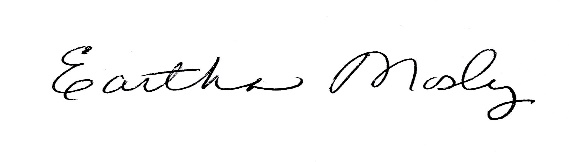 Eartha Mosley